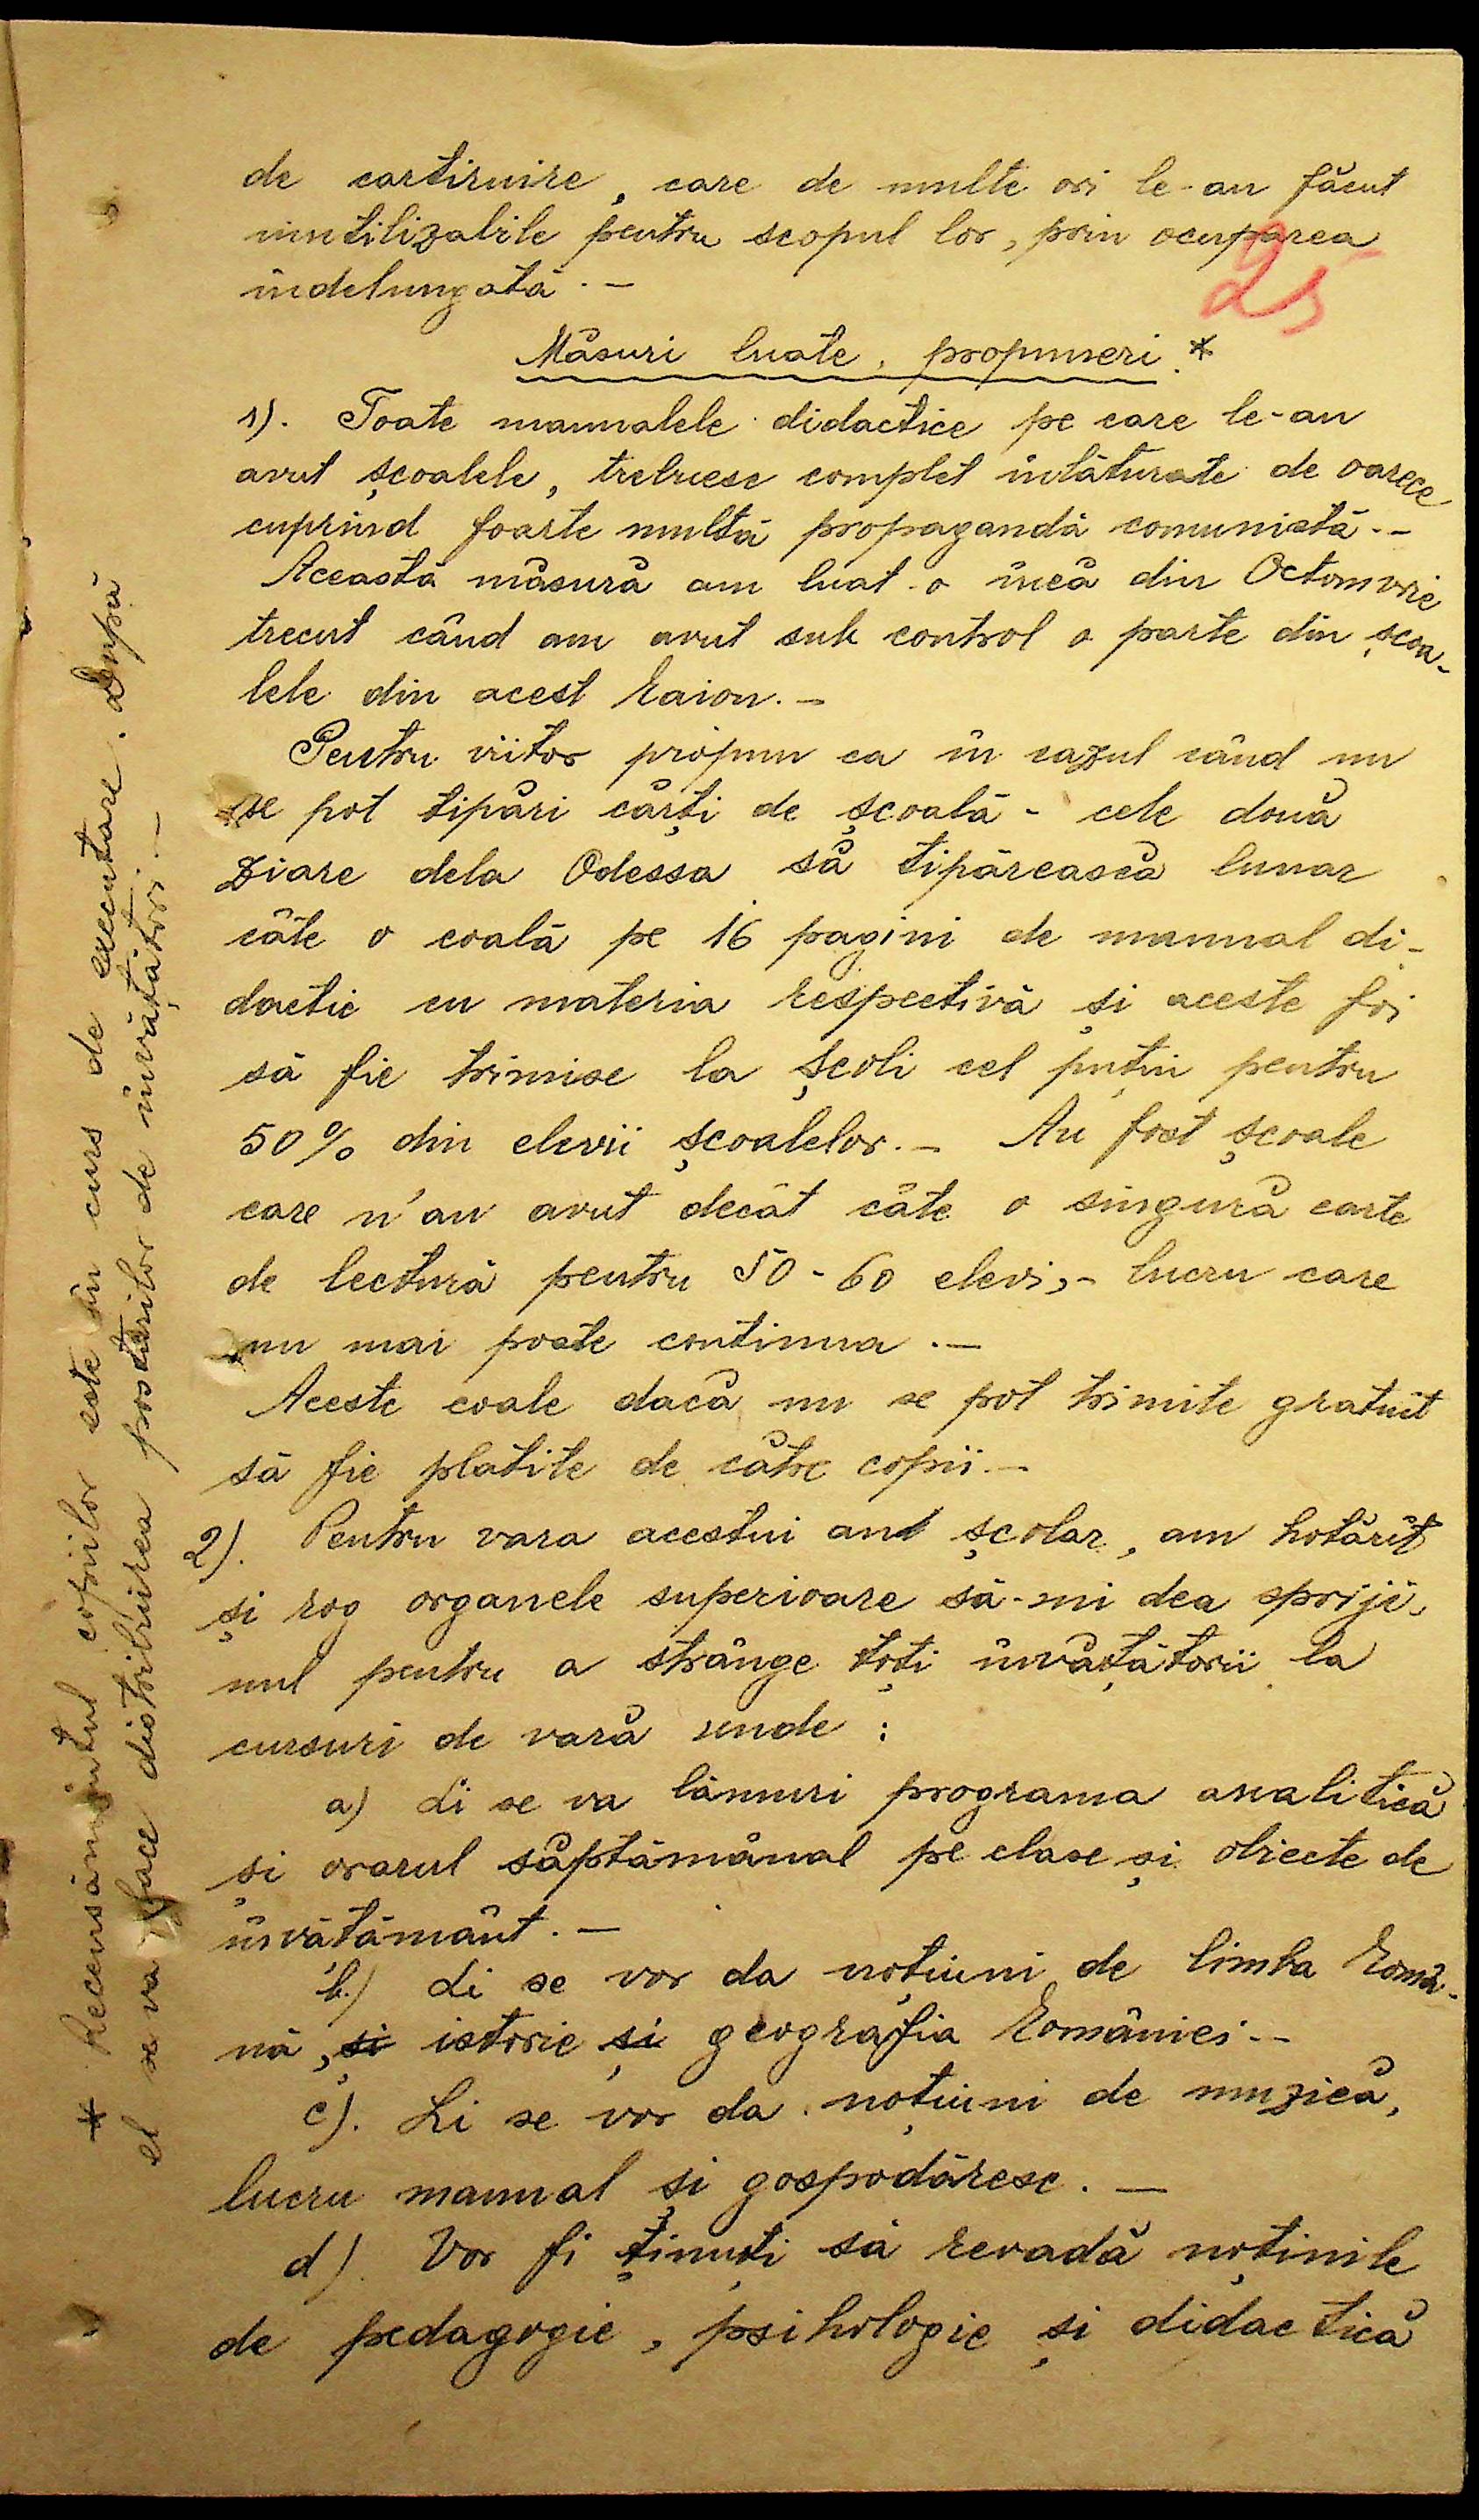 de cartiruire, care de multe ori le-au făcut
inutilizabile pentru scopul lor, prin ocuparea
îndelungată. —
25
Măsuri luate, propuneri.*
1). Toate manualele didactice pe care le-au
avut școalele, trebuesc complet înlăturate de oarece
cuprind foarte multă propagandă comunistă. -
Această măsură am luat-o încă din Octomvrie
trecut când am avut sub control o parte din școa-
lele din acest Raion. -
Pentru viitor propun ca în cazul când nu
se pot tipări cărți de școală - cele două
ziare dela Odessa să tipărească lunar
câte o coală pe 16 pagini de manual di-
dactic cu materia respectivă și aceste foi
să fie trimise la școli cel puțin pentru
50% din elevii școalelor. - Au fost școale
care n'au avut decât câte o singură carte
de lectură pentru 50-60 elevi, - lucru care
nu mai poate continua. —
Aceste coale dacă nu se pot trimite gratuit
să fie platite de către copii. —
2). Pentru vara acestui an școlar, am hotărît
și rog organele superioare să-mi dea spriji-
nul pentru a strânge toți învățătorii la
cursuri de vară unde :
a) Li se va lămuri programa analitică
și orarul săptămânal pe clase și obiecte de
învătământ. —
b.) Li se vor da noțiuni de limba Româ-
nă, și istorie și geografia României. -
c). Li se vor da noțiuni de muzică,
lucru manual și gospodăresc. —
d) Vor fi ținuți să revadă noținile
de pedagogie, psihologie și didactică
* Recensământul copiilor este în curs de executare. După
el se va face distribuirea posturilor de învățători. —